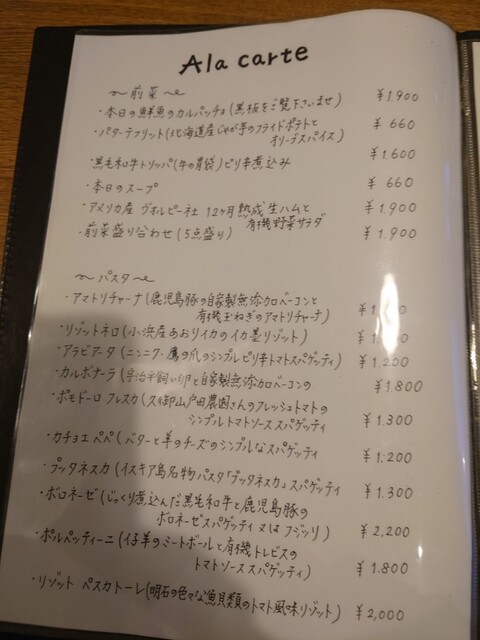 Ala carte
～ 前菜 ～
・本日の鮮魚のカルパッチョ(黒板をご覧下さいませ) ¥1900
・パターテフリット(北海道産じゃが芋のフライドポテトと ¥ 660
オリーブスパイス)
・黒毛和牛トリッパ(牛の胃袋)ピリ辛煮込み ¥1.600
・本日のスープ ¥ 660
・アメリカ産 ヴォルピー社 12ヶ月熟成生ハムと ¥1,900
有機野菜サラダ
・前菜盛り合わせ(5点盛り) ¥1,900
～ パスタ ～
・アマトリチャーナ(鹿児島豚の自家製無添加ベーコンと
有機玉ねぎのアマトリチャーナ) ¥
・リゾットネロ(小浜産あおりイカのイカ墨リゾット) ¥
・アラビアータ(ニンニク・鷹の爪のシンプルピリ辛トマトスパゲッティ) ¥1.200
・カルボナーラ(宇治平飼い卵と自家製無添加ベーコンの ¥1.800
・ポモドーロ フレスカ(久御山戸田農園さんのフレッシュトマトの
シンプルトマトソーススパゲッティ ¥1.300
・カチョエ ペペ(バターと羊のチーズのシンプルなスパゲッティ ¥1.200
・プッタネスカ(イスキア島名物パスタ「プッタネスカ」スパゲッティ ¥1.300
・ボロネーゼ(じっくり煮込んだ黒毛和牛と鹿児島豚の
ボロネーゼスパゲッティ又はフジッリ) ¥2,200
・ポルペッティーニ(仔羊のミートボールと有機トレビスの
トマトソーススパゲッティ) ¥1.800
・リゾット ペスカトーレ(明石の色々な魚貝類のトマト風味リゾット) ¥2,000